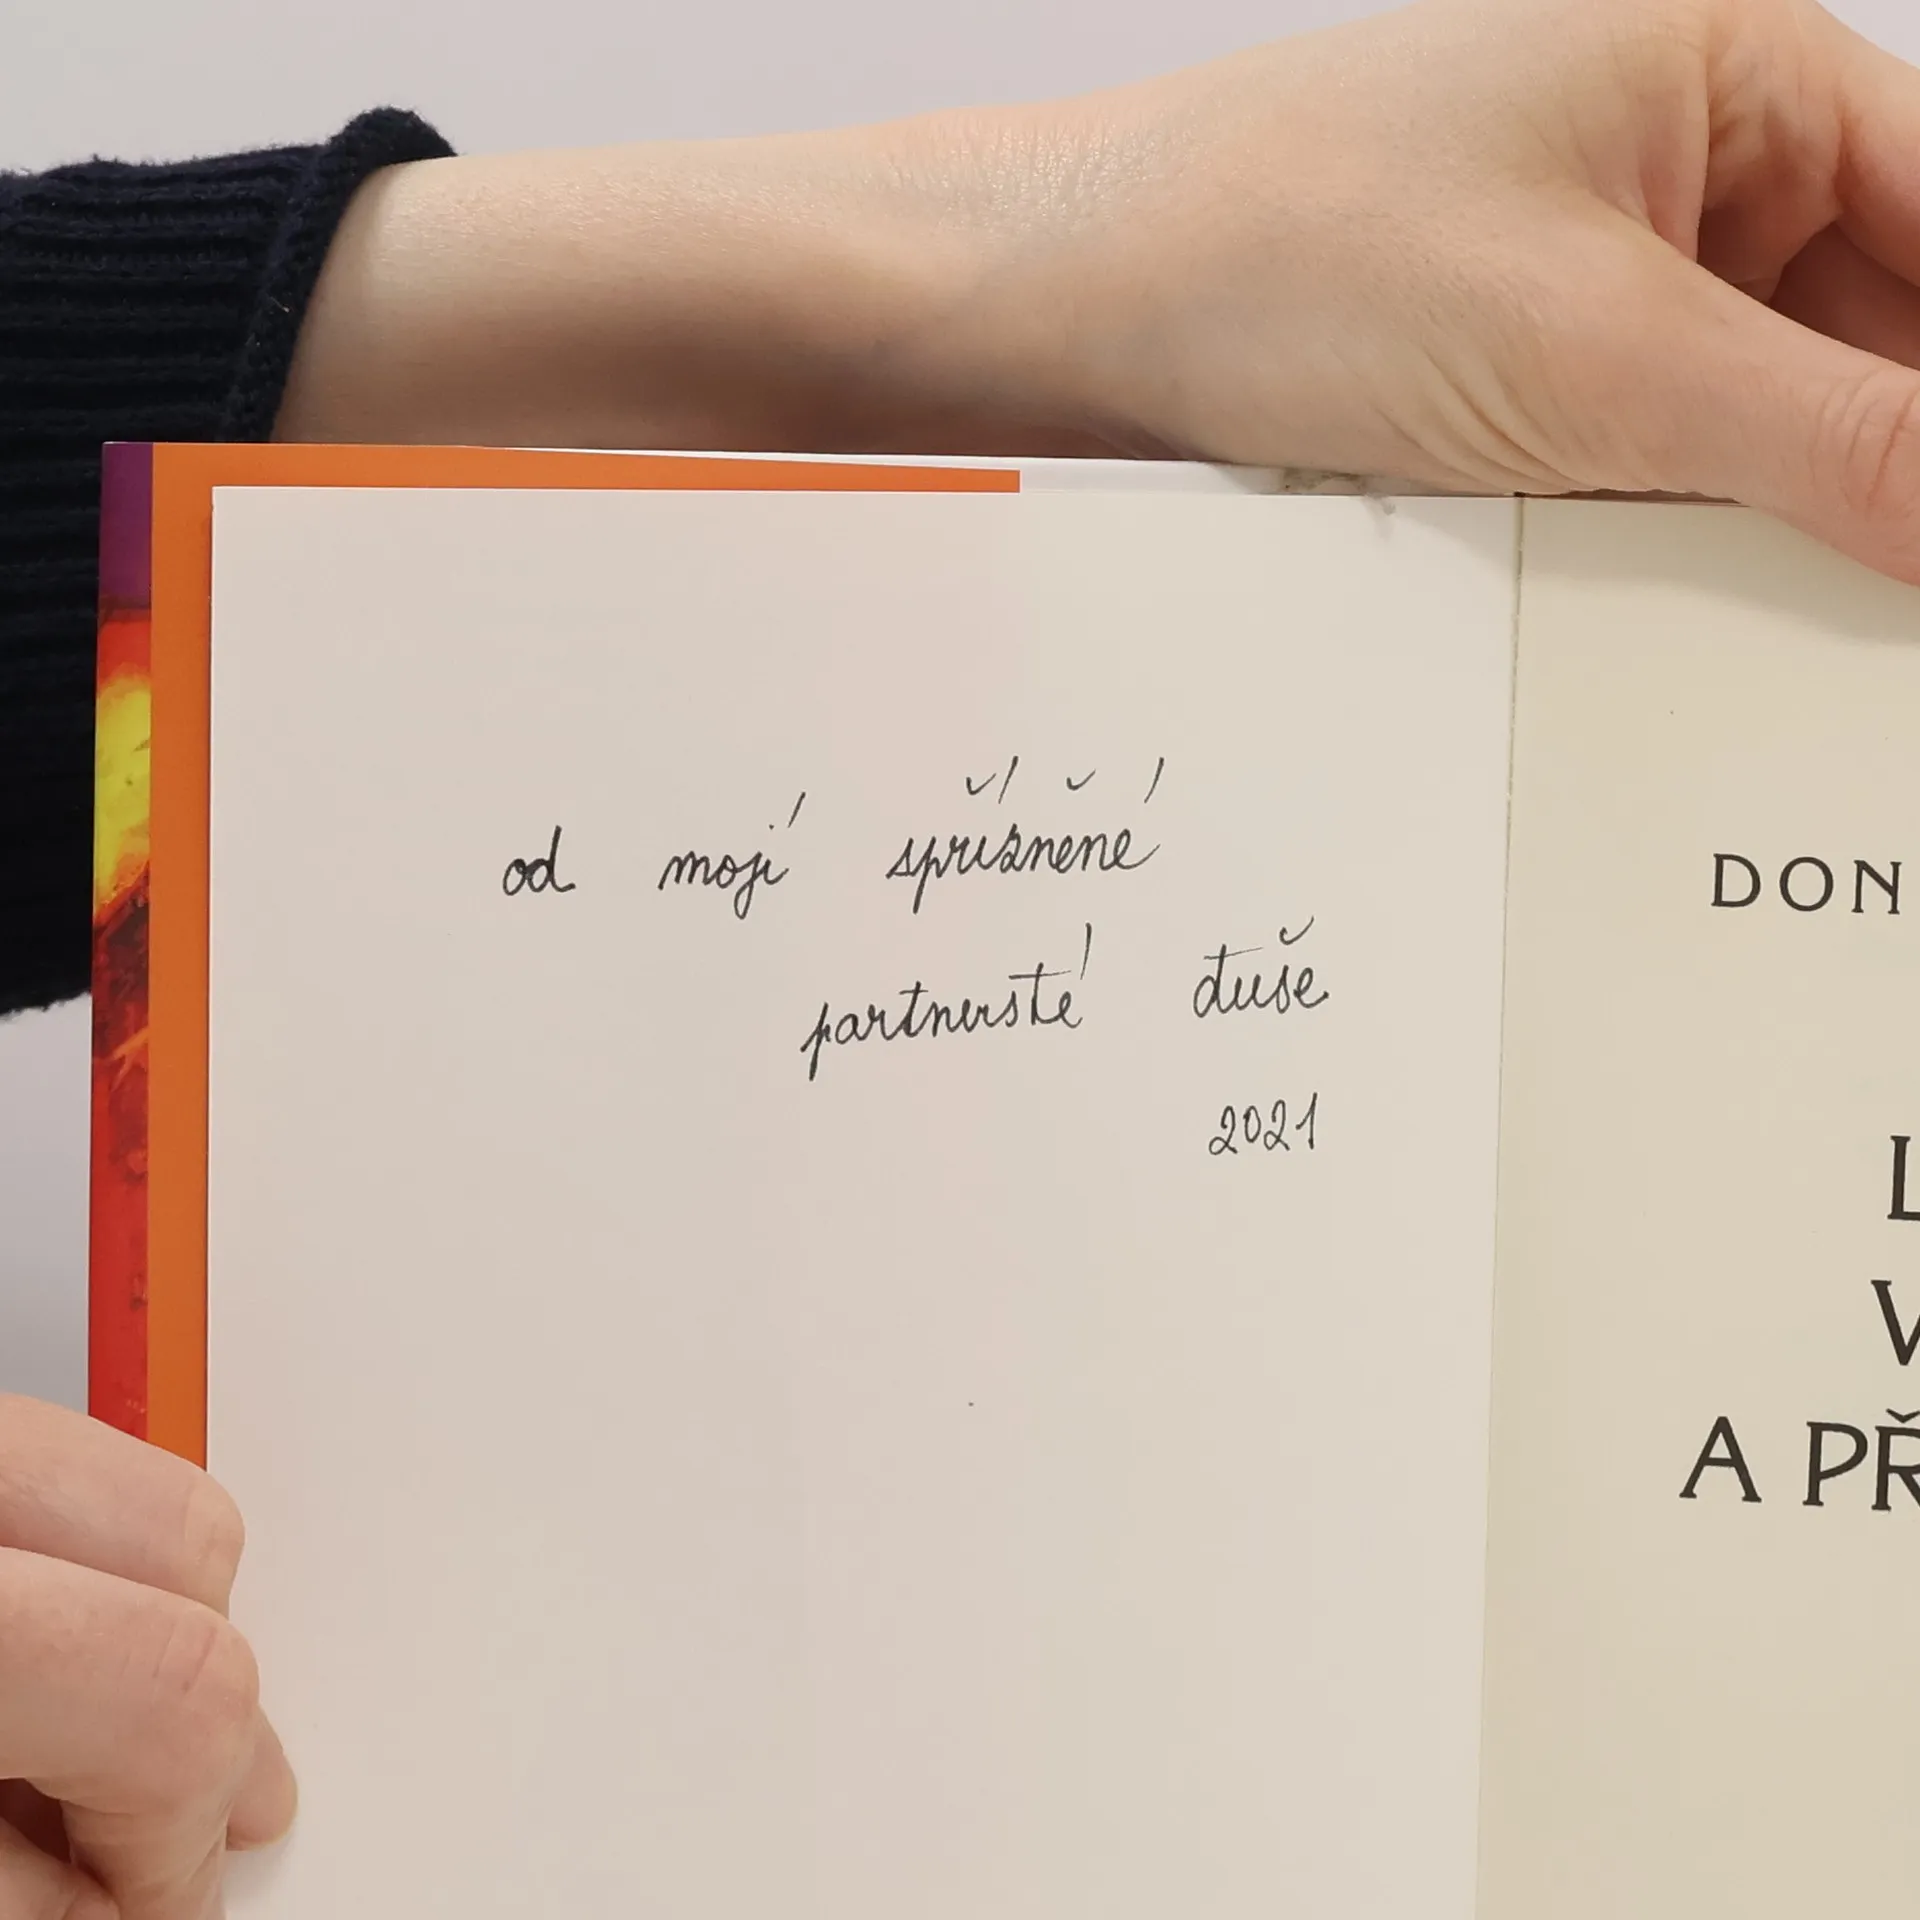 od mojí spřízněné
partnersté duše
2021
DON
L
V
A PŘ